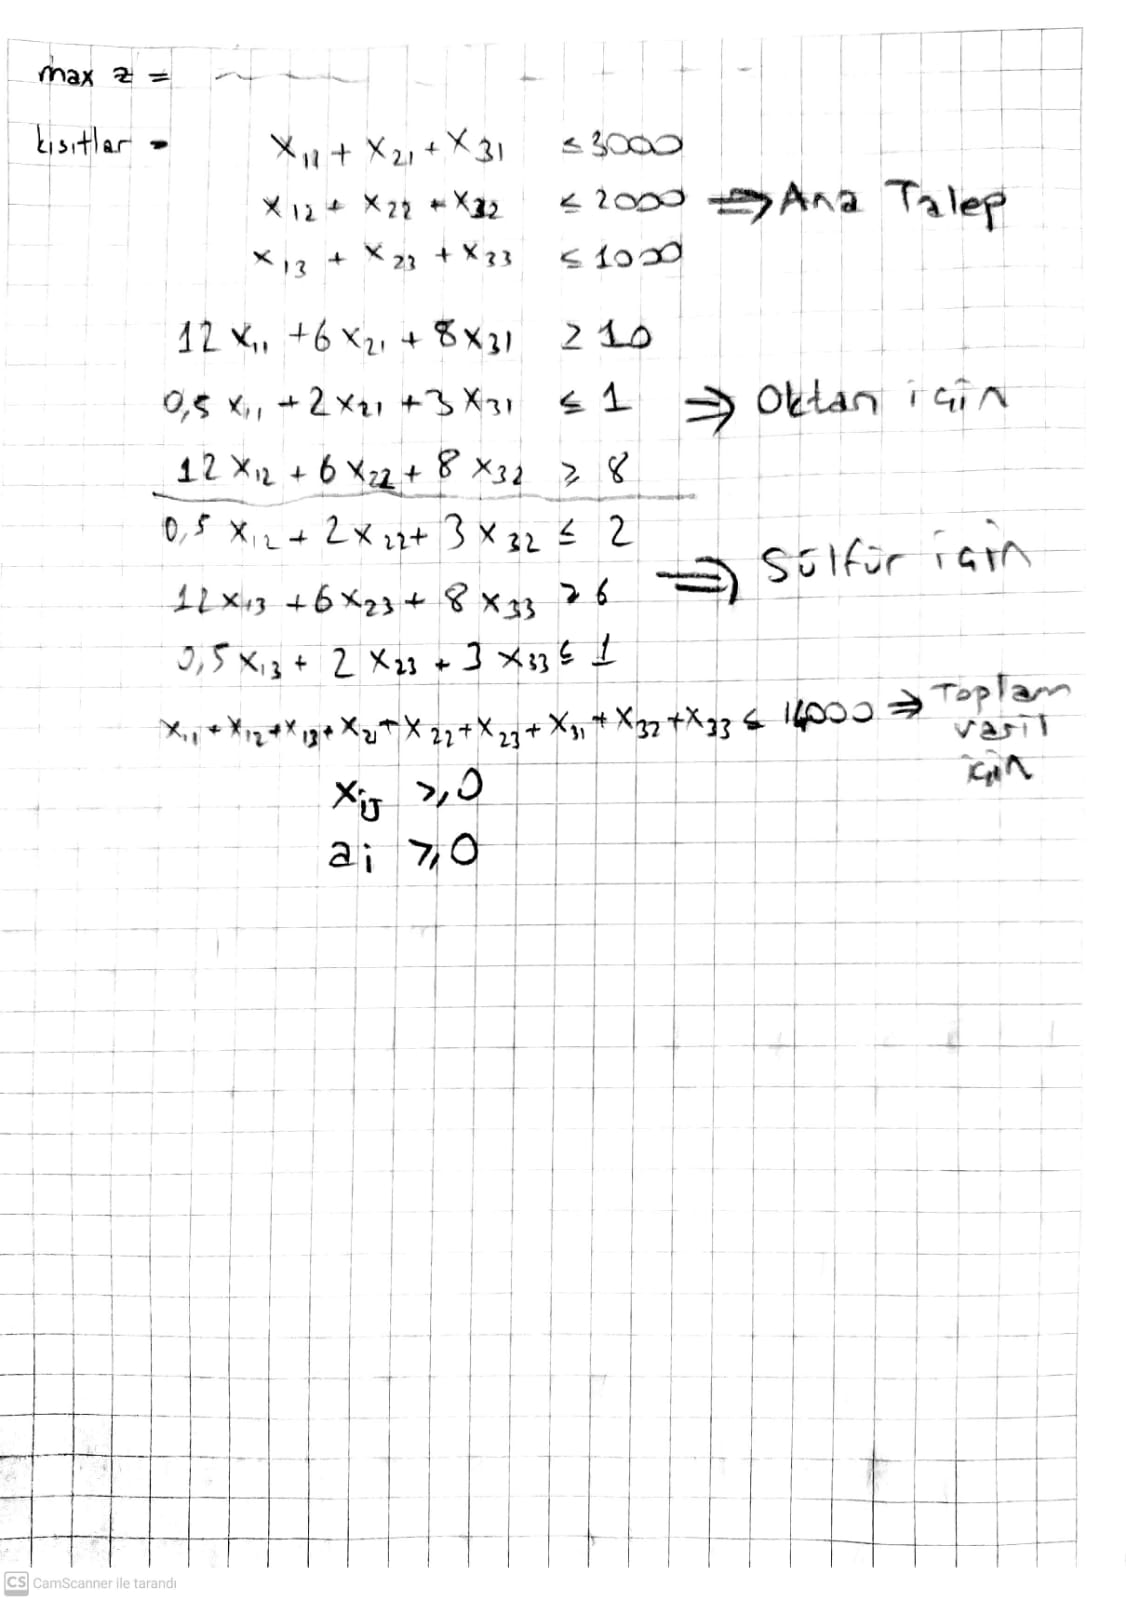 max z =
kısıtlar -
x11 + x21 + x31 ≤ 3000
x12 + x22 + x32 ≤ 2000 ⇒ Ana Talep
x13 + x23 + x33 ≤ 1000
12 x11 + 6 x21 + 8 x31 ≥ 10
0,5 x11 + 2 x21 + 3 x31 ≤ 1 ⇒ Oktan için
12 x12 + 6 x22 + 8 x32 ≥ 8
0,5 x12 + 2 x22 + 3 x32 ≤ 2
⇒ Sülfür için
12 x13 + 6 x23 + 8 x33 ≥ 6
0,5 x13 + 2 x23 + 3 x33 ≤ 1
x11 + x12 + x13 + x21 + x22 + x23 + x31 + x32 + x33 ≤ 14000 ⇒ Toplam varil için
xij ≥ 0
ai ≥ 0
CS CamScanner ile tarandı